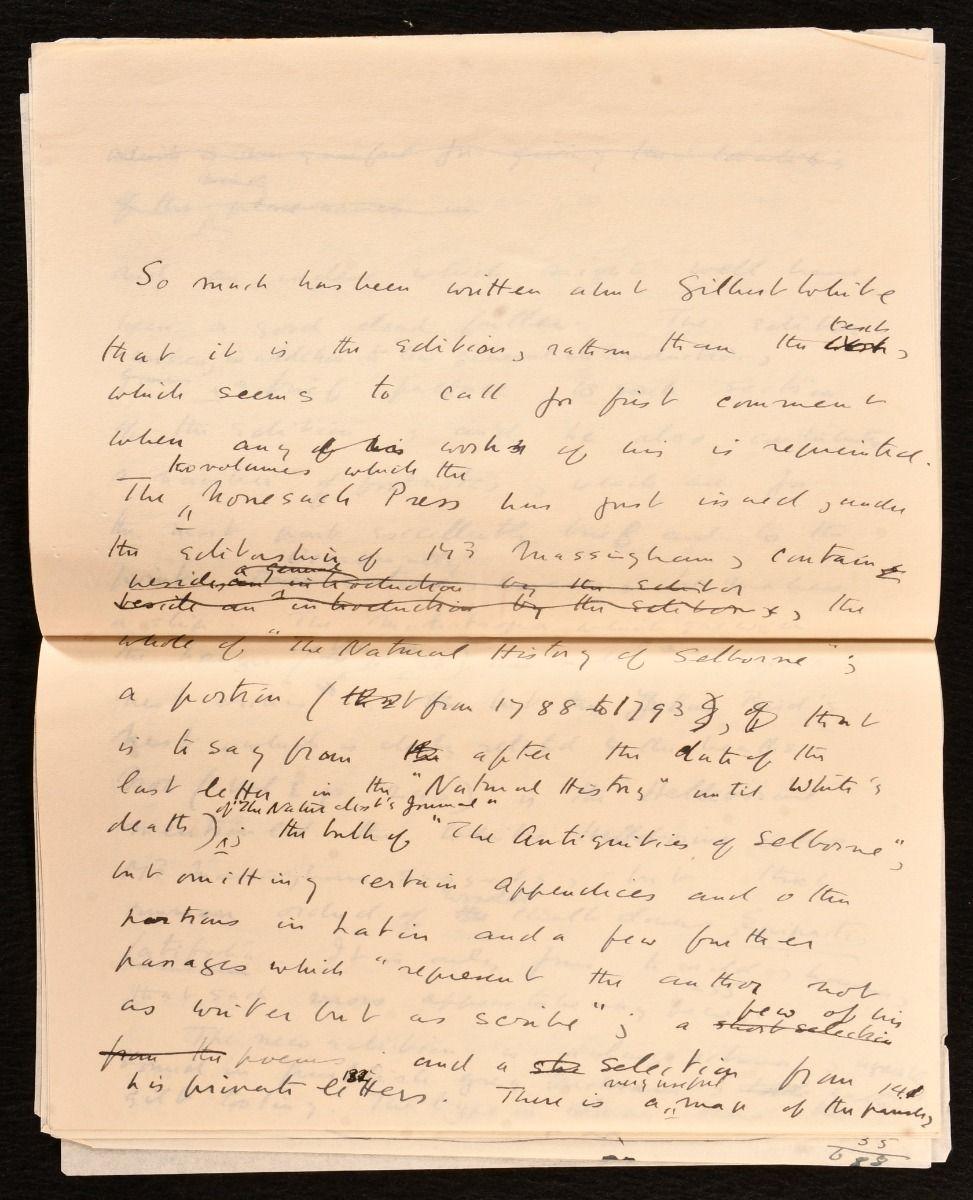 So much has been written about Gilbert White
that it is the edition, rather than the text,
which seems to call for first comment
when any of his work of his is reprinted.
The two volumes which the Nonesuch Press has just issued, under
the editorship of H J Massingham, contain
besides a general introduction by the editor
beside an introduction by the editor, the
whole of "The Natural History of Selborne";
a portion (that from 1788 to 1793, that
is to say from the after the date of the
last letter in the "Natural History" until White's
death) of "The Naturalist's Journal"; the bulk of "The Antiquities of Selborne",
but omitting certain appendices and other
portions in Latin and a few further
passages which "represent the author not
as writer but as scribe"; a short selection few of his
from the poems; and a selection from
his private letters. There is a very useful map of the parish,
55